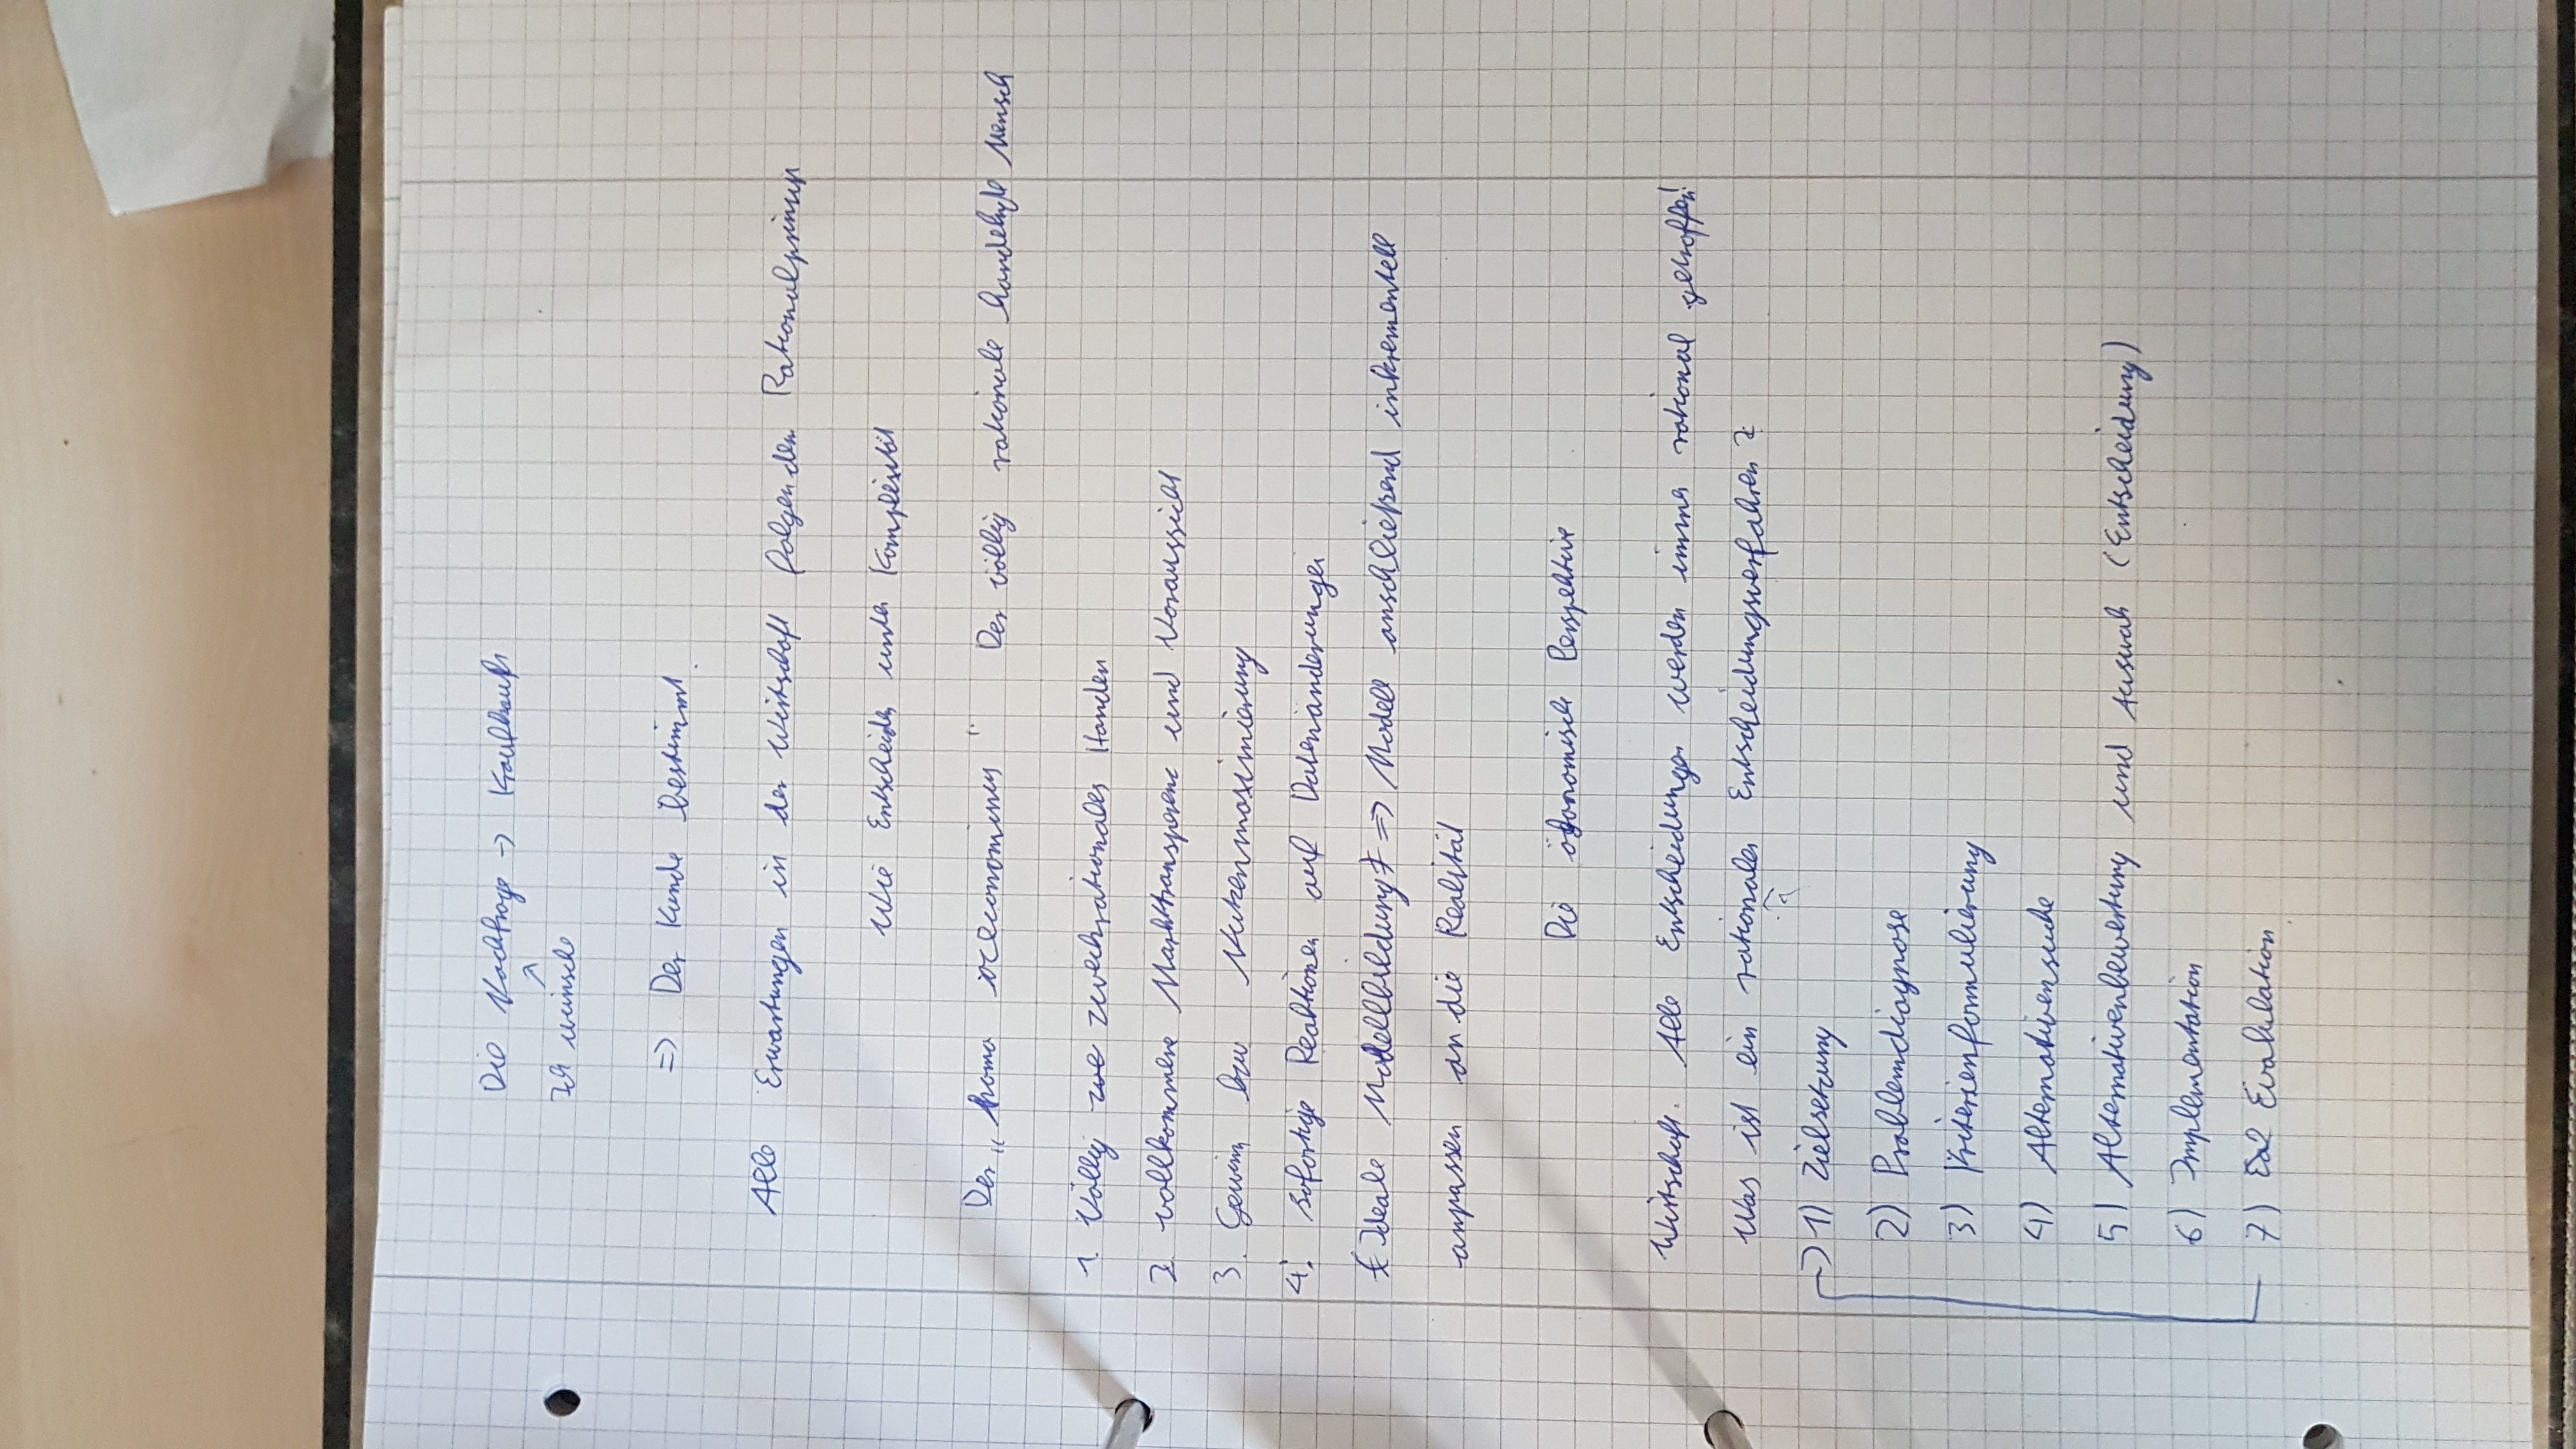 Die Nachfrage → Kraufkauft
↗
Ich wünsche
=> Der Kunde bestimmt.
Alle Erwartungen in der Wirtschaft folgen dem Rationalprinzip
Wie Entscheiden unter Komplexität
Der „homo oeconomicus“ Der völlig rationale handelnde Mensch
1. Völlig zweckrationales Handen
2. vollkommene Markttransparenz und Voraussicht
3. Gewinn bzw Nutzenmaximierung
4. sofortige Reaktionen auf Datenänderungen
(Ideale Modellbildung) => Modell anschließend inkrementell
anpassen an die Realität
Die ökonomische Perspektive
Wirtschaft. Alle Entscheidungen werden immer rational getroffen!
Was ist ein rationales Entscheidungsverfahren?
→ 1) Zielsetzung
2) Problemdiagnose
3) Kriterienformulierung
4) Alternativensuche
5) Alternativenbewertung und Auswah (Entscheidung)
6) Implementation
7) Evalulation